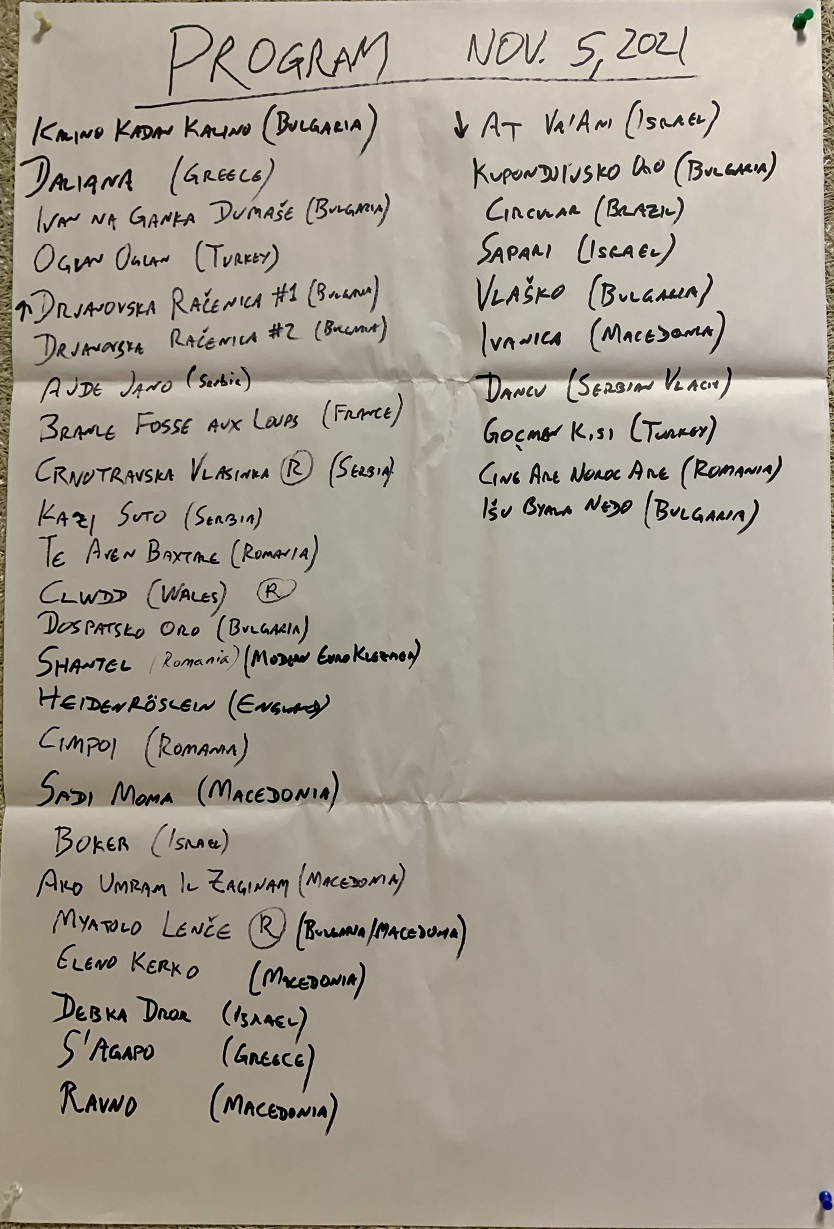 PROGRAM NOV. 5, 2021
KALINO KADAN KALINO (BULGARIA)
DALIANA (GREECE)
IVAN NA GANKA DUMAŠE (BULGARIA)
OGLAN OGLAN (TURKEY)
↑ DRJANOVSKA RAČENICA #1 (BULGARIA)
DRJANOVSKA RAČENICA #2 (BULGARIA)
AJDE JANO (Serbia)
BRANLE FOSSE AUX LOUPS (FRANCE)
CRNOTRAVSKA VLASINKA Ⓡ (SERBIA)
KAZI SUTO (SERBIA)
TE AVEN BAXTALE (ROMANIA)
CLWDD (WALES) Ⓡ
DOSPATSKO ORO (BULGARIA)
SHANTEL (Romania) (MODERN EURO KLEZMER)
HEIDENRÖSLEIN (ENGLAND)
CIMPOI (ROMANIA)
SADI MOMA (MACEDONIA)
BOKER (ISRAEL)
AKO UMRAM IL ZAGINAM (MACEDONIA)
MYATOLO LENČE Ⓡ (BULGARIA/MACEDONIA)
ELENO KERKO (MACEDONIA)
DEBKA DROR (ISRAEL)
S'AGAPO (GREECE)
RAVNO (MACEDONIA)
↓ AT VA'ANI (ISRAEL)
ORO (BULGARIA)
CIRCULAR (BRAZIL)
SAPARI (ISRAEL)
VLAŠKO (BULGARIA)
IVANICA (MACEDONIA)
DANCU (SERBIAN VLACH)
GOÇMEN KISI (TURKEY)
CINE ARE NOROC ARE (ROMANIA)
IŠU BYALA NEDO (BULGARIA)